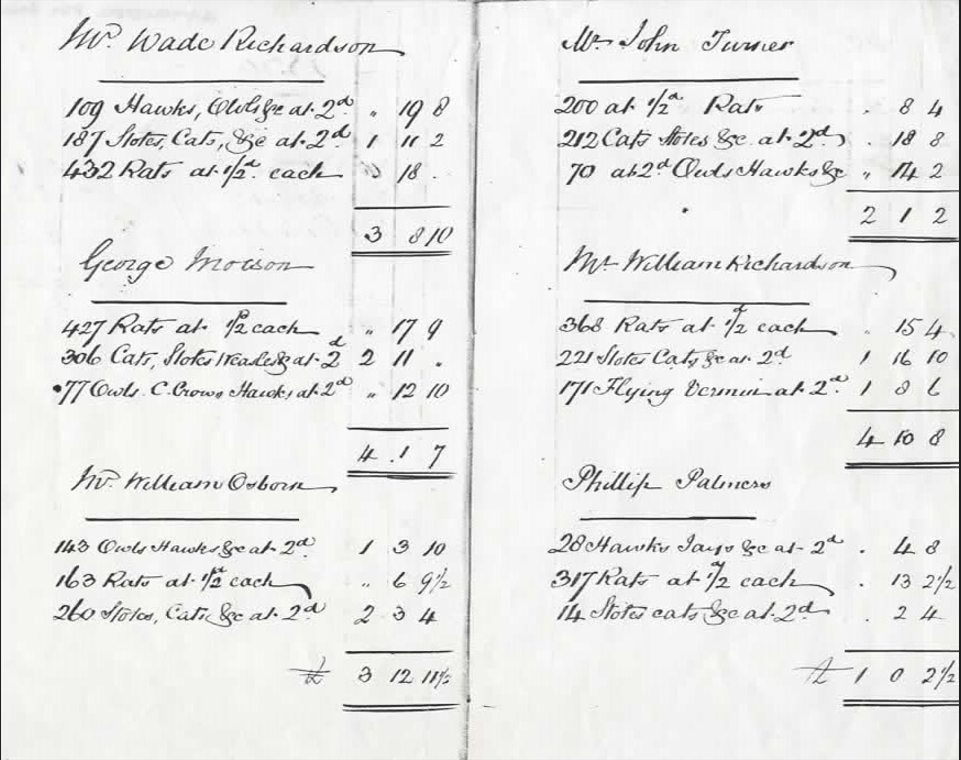 Mr. Wade Richardson
109 Hawks, Owls &c at 2d. " 19 8
187 Stotes, Cats, &c at 2d. 1 11 2
432 Rats at 1/2d. each " 18 .
3 8 10
George Mowson
427 Rats at 1/2 each " 17 9
306 Cats, Stotes Weasles &c at 2d 2 11 .
77 Owls. C. Crows Hawks, at 2d " 12 10
4 . 1 7
Mr. William Osborn
143 Owls Hawks &c at 2d 1 3 10
163 Rats at 1/2d each " 6 9 1/2
260 Stotes, Cats &c at 2d 2 3 4
£ 3 12 11 1/2
Mr John Turner
200 at 1/2d Rats . 8 4
212 Cats Stotes &c. at 2d . 18 8
70 at 2d Owls Hawks &c " 14 2
2 1 2
Mr William Richardson
368 Rats at 1/2d each " 15 4
221 Stotes Cats &c at 2d 1 16 10
171 Flying Vermin at 2d. 1 8 6
4 10 8
Phillip Palmers
28 Hawks Jays &c at 2d . 4 8
317 Rats at 1/2d each . 13 2 1/2
14 Stotes cats &c at 2d . 2 4
£ 1 0 2 1/2